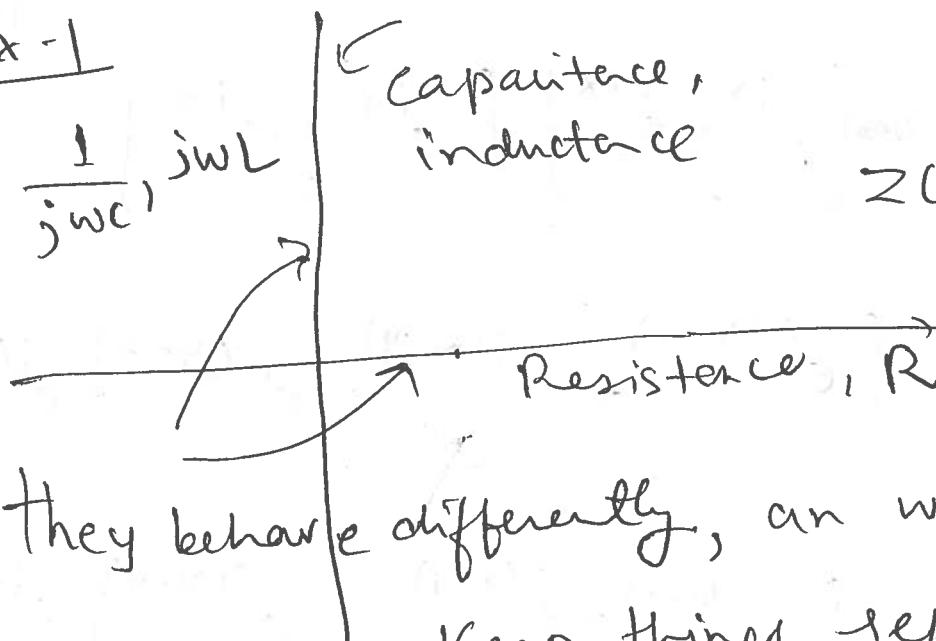 x-1
1/jwc, jwL
capacitence,
inductence
Z(
Resistence, R
they behave differently, an w
things